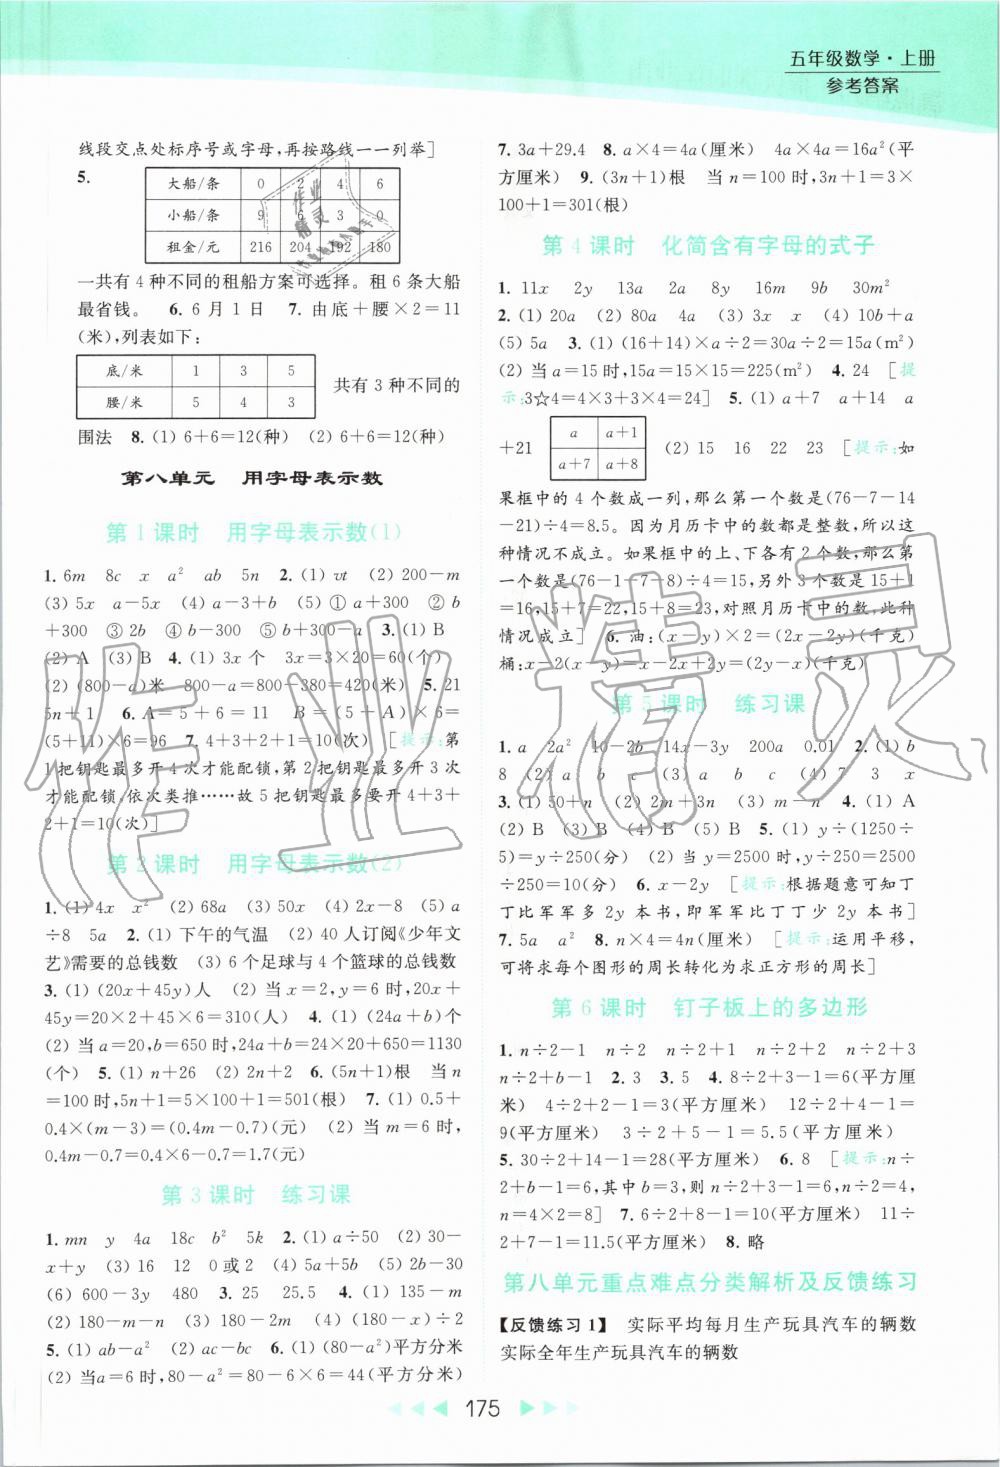 五年级数学·上册
参考答案
线段交点处标序号或字母,再按路线一一列举]
5.
大船/条 0 2 4 6
小船/条 9 6 3 0
租金/元 216 204 192 180
一共有4种不同的租船方案可选择。租6条大船
最省钱。 6. 6月1日 7. 由底+腰×2=11
(米),列表如下:
底/米 1 3 5
腰/米 5 4 3
共有3种不同的
围法 8. (1) 6+6=12(种) (2) 6+6=12(种)
第八单元 用字母表示数
第1课时 用字母表示数(1)
1. 6m 8c x a² ab 5n 2. (1) vt (2) 200-m
(3) 5x a-5x (4) a-3+b (5) ① a+300 ② b
+300 ③ 2b ④ b-300 ⑤ b+300-a 3. (1) B
(2) A (3) B 4. (1) 3x个 3x=3×20=60(个)
(2) (800-a)米 800-a=800-380=420(米) 5. 21
5n+1 6. A=5+6=11 B=(5+A)×6=
(5+11)×6=96 7. 4+3+2+1=10(次) [提示:第
1把钥匙最多开4次才能配锁,第2把钥匙最多开3次
才能配锁,依次类推……故5把钥匙最多要开4+3+
2+1=10(次)]
第2课时 用字母表示数(2)
1. (1) 4x x² (2) 68a (3) 50x (4) 2x-8 (5) a
÷8 5a 2. (1) 下午的气温 (2) 40人订阅《少年文
艺》需要的总钱数 (3) 6个足球与4个篮球的总钱数
3. (1) (20x+45y)人 (2) 当x=2,y=6时,20x+
45y=20×2+45×6=310(人) 4. (1) (24a+b)个
(2) 当a=20,b=650时,24a+b=24×20+650=1130
(个) 5. (1) n+26 (2) 2n+2 6. (5n+1)根 当n
=100时,5n+1=5×100+1=501(根) 7. (1) 0.5+
0.4×(m-3)=(0.4m-0.7)(元) (2) 当m=6时,
0.4m-0.7=0.4×6-0.7=1.7(元)
第3课时 练习课
1. mn y 4a 18c b² 5k 2. (1) a÷50 (2) 30-
x+y (3) 16 12 0或2 (4) 5a+5b (5) 2b-20
(6) 600-3y 480 3. 25 25.5 4. (1) 135-m
(2) 180-m-n (3) 180-2m (4) (180-n)÷2
5. (1) ab-a² (2) ac-bc 6. (1) (80-a²)平方分米
(2) 当a=6时,80-a²=80-6×6=44(平方分米)
7. 3a+29.4 8. a×4=4a(厘米) 4a×4a=16a²(平
方厘米) 9. (3n+1)根 当n=100时,3n+1=3×
100+1=301(根)
第4课时 化简含有字母的式子
1. 11x 2y 13a 2a 8y 16m 9b 30m²
2. (1) 20a (2) 80a 4a (3) 3x x (4) 10b+a
(5) 5a 3. (1) (16+14)×a÷2=30a÷2=15a(m²)
(2) 当a=15时,15a=15×15=225(m²) 4. 24 [提
示:3☆4=4×3+3×4=24] 5. (1) a+7 a+14 a
+21
a a+1
a+7 a+8
(2) 15 16 22 23 [提示:如
果框中的4个数成一列,那么第一个数是(76-7-14
-21)÷4=8.5。因为月历卡中的数都是整数,所以这
种情况不成立。如果框中的上、下各有2个数,那么第
一个数是(76-1-7-8)÷4=15,另外3个数是15+1
=16,15+7=22,15+8=23,对照月历卡中的数,此种
情况成立] 6. 油:(x-y)×2=(2x-2y)(千克)
桶:x-2(x-y)=x-2x+2y=(2y-x)(千克)
第5课时 练习课
1. a 2a² 10-2b 14x-3y 200a 0.01 2. (1) b
8 (2) a b c (3) a b c (4) 7 3 x
3. (1) 50+n (2) 2m+3n (3) m-n 4. (1) A
(2) B (3) B (4) B (5) B 5. (1) y÷(1250÷
5)=y÷250(分) (2) 当y=2500时,y÷250=2500
÷250=10(分) 6. x-2y [提示:根据题意可知丁
丁比军军多2y本书,即军军比丁丁少2y本书]
7. 5a a² 8. n×4=4n(厘米) [提示:运用平移,
可将求每个图形的周长转化为求正方形的周长]
第6课时 钉子板上的多边形
1. n÷2-1 n÷2 n÷2+1 n÷2+2 n÷2+3
n÷2+b-1 2. 3 3. 5 4. 8÷2+3-1=6(平方厘
米) 4÷2+2-1=3(平方厘米) 12÷2+4-1=
9(平方厘米) 3÷2+5-1=5.5(平方厘米)
5. 30÷2+14-1=28(平方厘米) 6. 8 [提示:n÷
2+b-1=6,其中b=3,则n÷2+3-1=6,n÷2=4,
n=4×2=8] 7. 6÷2+8-1=10(平方厘米) 11÷
2+7-1=11.5(平方厘米) 8. 略
第八单元重点难点分类解析及反馈练习
【反馈练习1】 实际平均每月生产玩具汽车的辆数
实际全年生产玩具汽车的辆数
175
作业精灵